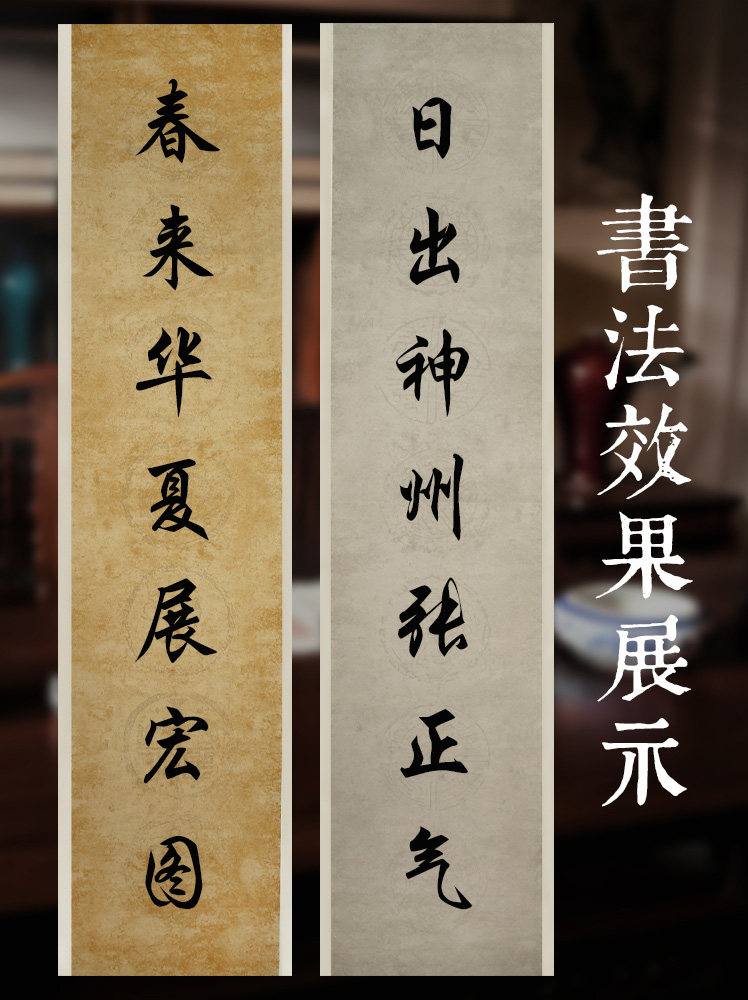 書法效果展示
日出神州张正气
春来华夏展宏图